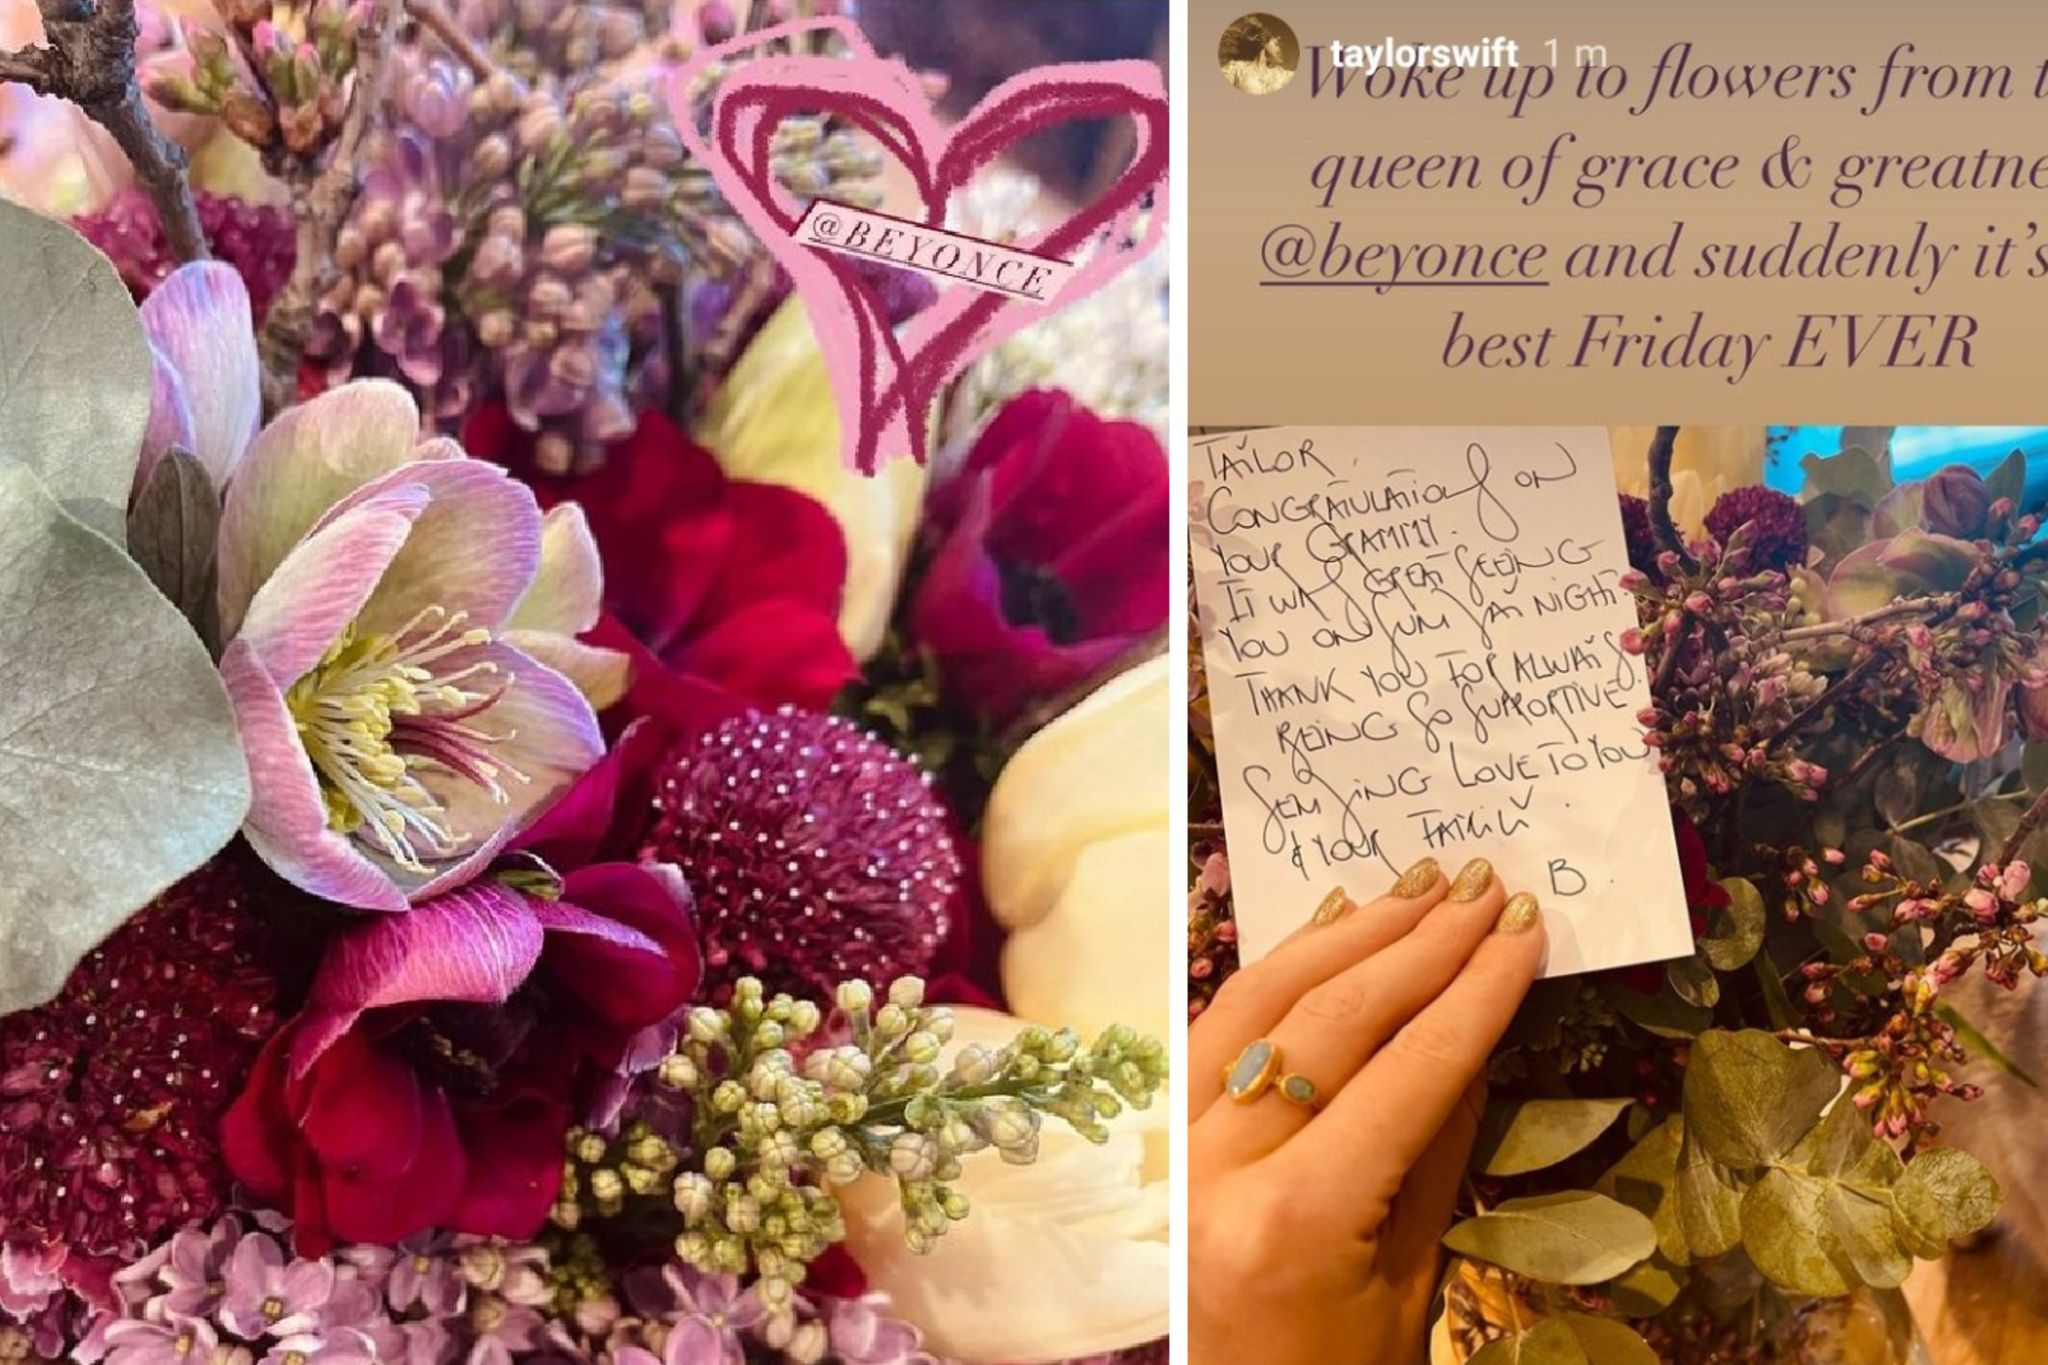 @BEYONCE
taylorswift 1 m
Woke up to flowers from t
queen of grace & greatne
@beyonce and suddenly it's
best Friday EVER
TAYLOR,
CONGRATULATIONS ON
YOUR GRAMMY.
IT WAS GREAT SEEING
YOU ON SUNDAY NIGHT.
THANK YOU FOR ALWAYS
BEING SO SUPPORTIVE.
SENDING LOVE TO YOU
& YOUR FAMILY.
B.